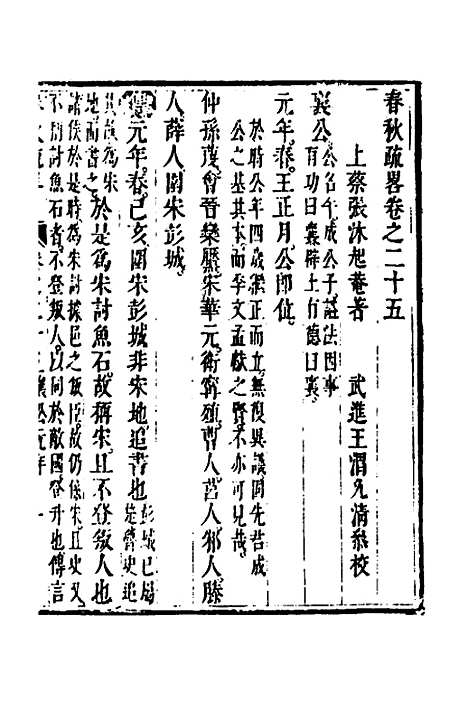 春秋疏畧卷之二十五
上蔡張沐起菴著 武進王渭允清叅校
襄公公名午成公子諡法因事
有功曰襄辟土有德曰襄
元年春王正月公卽位
於時公年四歲繼正而立無復異議固先君成
公之基其本而季文孟獻之賢不亦可見哉
仲孫蔑會晉欒黶宋華元衛甯殖曹人莒人邾人滕
人薛人圍宋彭城
傳元年春己亥圍宋彭城非宋地追書也彭城已屬
楚魯史追
爲宋
地而書之於是爲宋討魚石故稱宋且不登叛人也
諸侯於是時爲宋討叛邑之叛臣故仍係宋且史又
不明討魚石者不登叛人以同於敵國登升也傳言